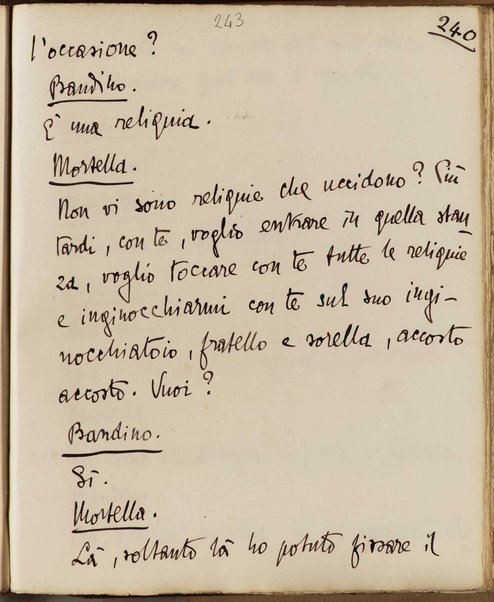 243
240
l'occasione?
Bandino.
È una reliquia.
Mortella.
Non vi sono reliquie che uccidono? Più
tardi, con te, voglio entrare in quella stan-
za, voglio toccare con te tutte le reliquie
e inginocchiarmi con te sul suo ingi-
nocchiatoio, fratello e sorella, accosto
accosto. Vuoi?
Bandino.
Sì.
Mortella.
Là, soltanto là ho potuto fissare il